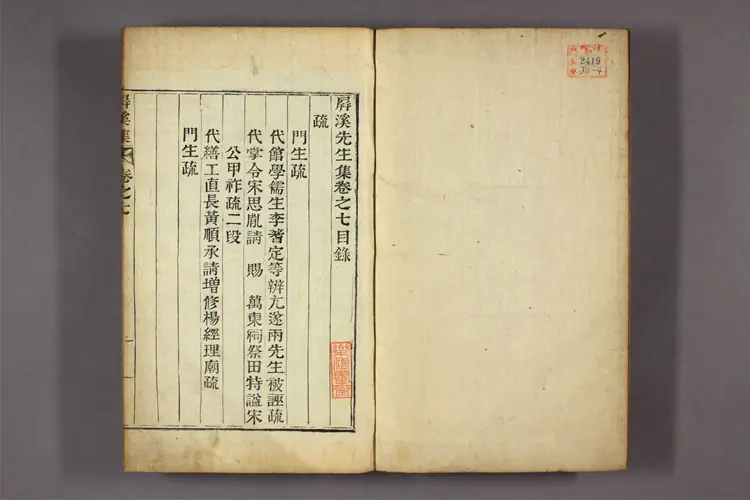 屛溪先生集卷之七目錄
疏
門生疏
代館學儒生李蓍定等辨尤遂兩先生被誣疏
代掌令宋思胤請 賜 萬東祠祭田特諡宋
公甲祚疏二段
代繕工直長黃順承請增修楊經理廟疏
門生疏
屛溪集
卷之七
一
2419
30-4